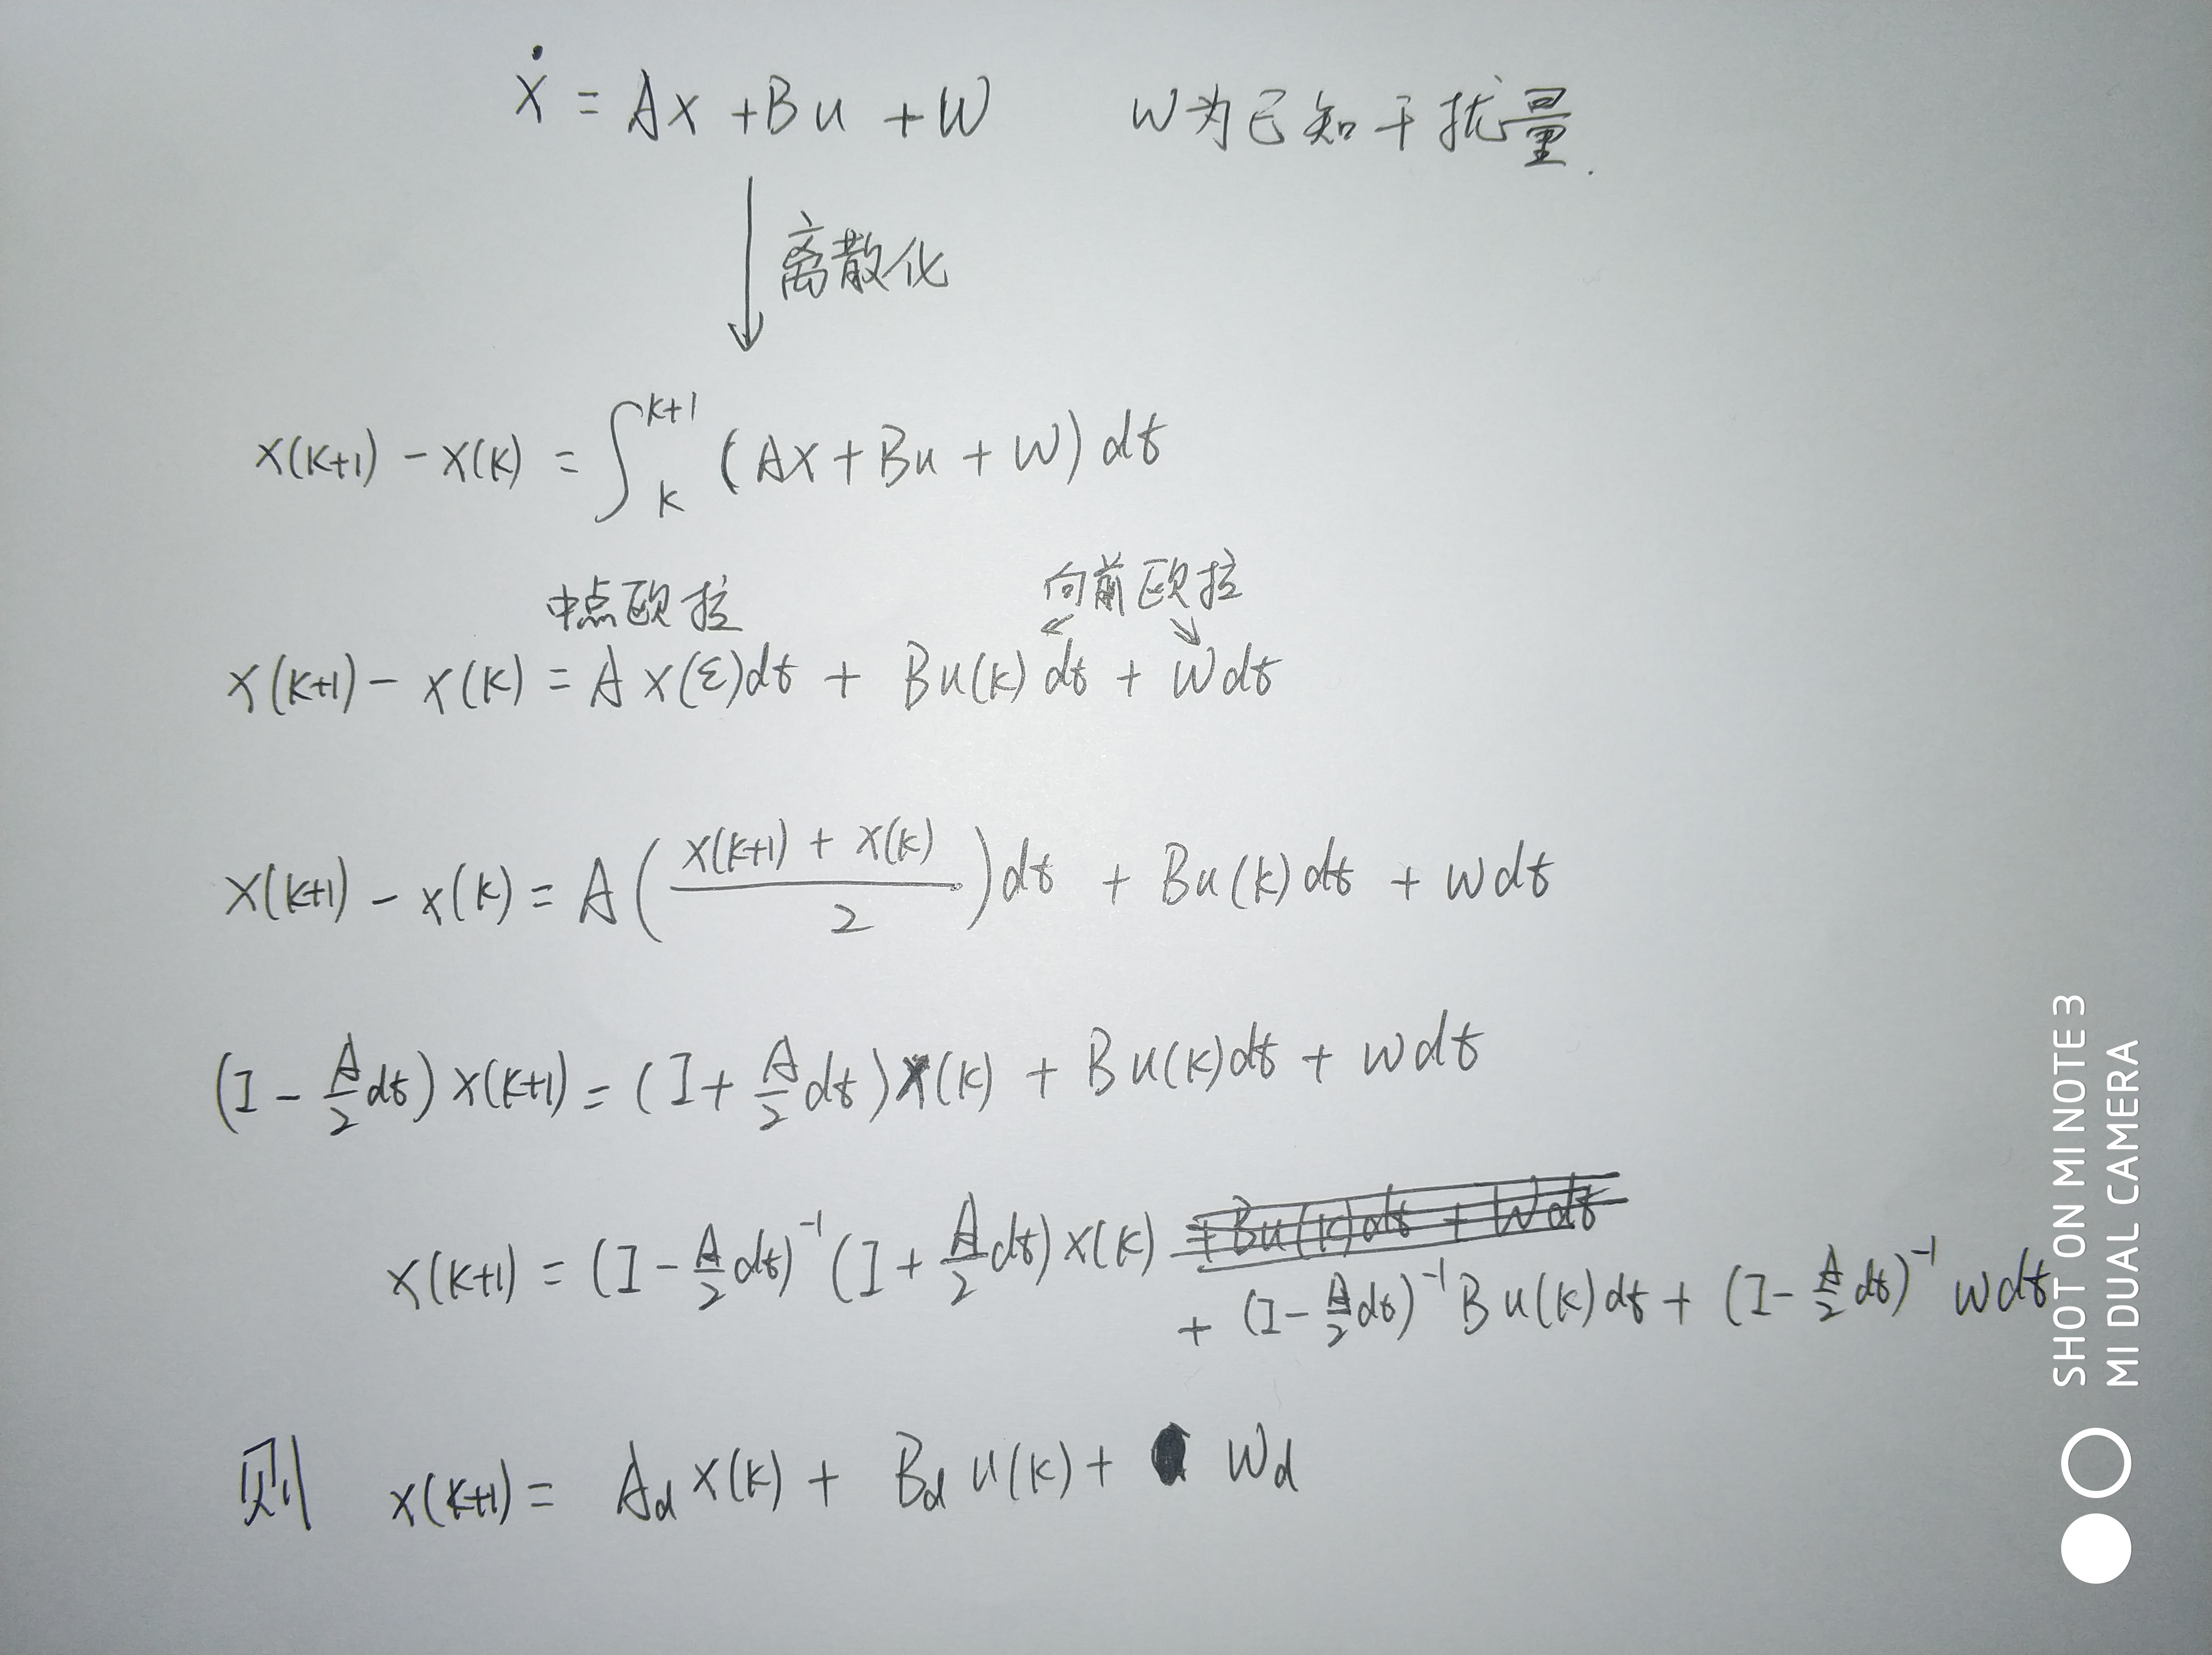 ẋ = Ax + Bu + W W为已知干扰量.
离散化
x(k+1) - x(k) = ∫ₖᵏ⁺¹ (Ax + Bu + W) dt
中点欧拉 向前欧拉
x(k+1) - x(k) = A x(ε)dt + Bu(k) dt + Wdt
x(k+1) - x(k) = A ( (x(k+1) + x(k)) / 2 ) dt + Bu(k) dt + Wdt
(I - A/2 dt) x(k+1) = (I + A/2 dt) x(k) + Bu(k)dt + Wdt
x(k+1) = (I - A/2 dt)⁻¹ (I + A/2 dt) x(k) + Bu(k)dt + Wdt
+ (I - A/2 dt)⁻¹ Bu(k)dt + (I - A/2 dt)⁻¹ Wdt
则 x(k+1) = A_d x(k) + B_d u(k) + W_d
SHOT ON MI NOTE 3
MI DUAL CAMERA